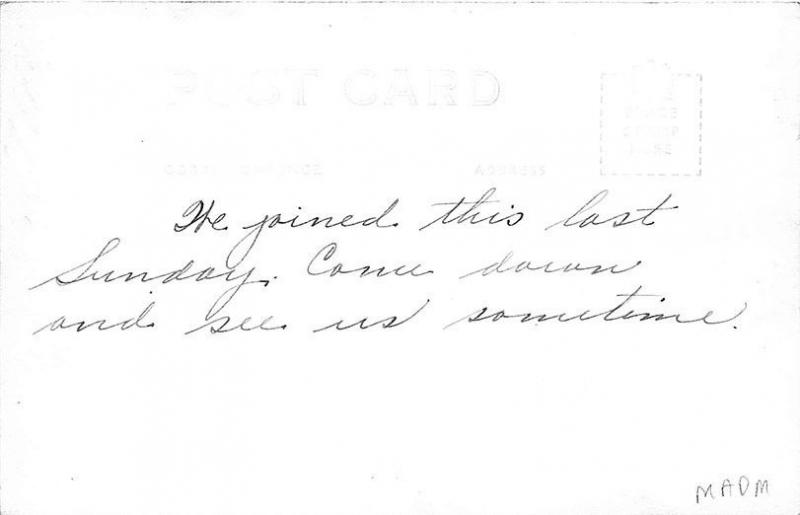 POST CARD
CORRESPONDENCE
ADDRESS
PLACE
STAMP
HERE
We joined this last
Sunday. Come down
and see us sometime.
MADM